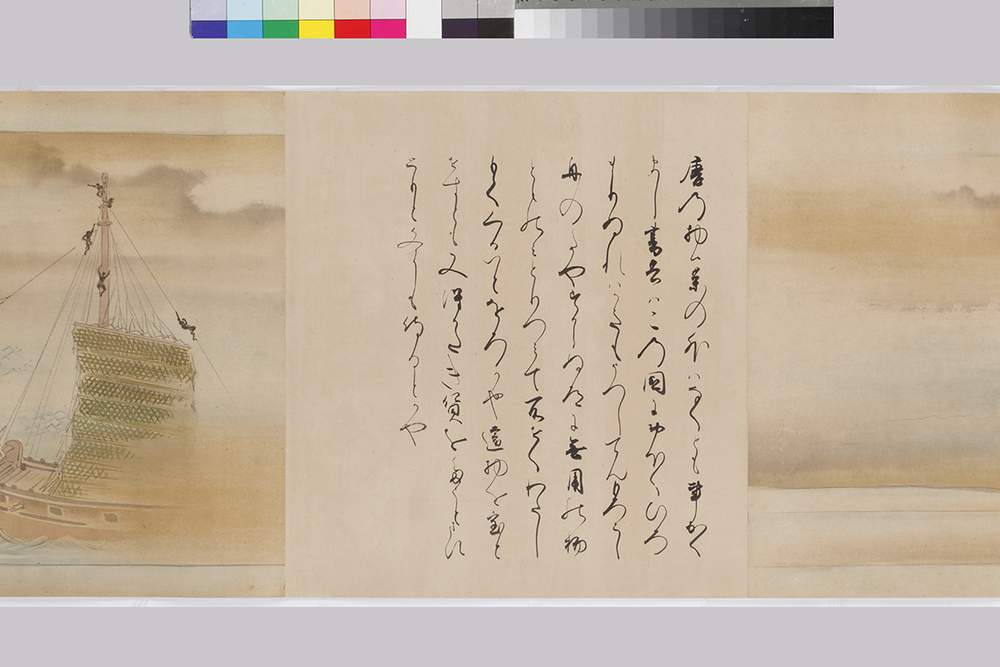 唐乃物ハ薬の外ハなくとも事かく
まし書共ハこの国におほくひろ
まりぬれハかきもうつしてんもろこし
舟のたやすからぬ道に無用の物
とものミとりつミて所せくわたし
もてくるいとをろか也遠物を宝と
せすとも又得かたき貨をたうとます
とも文にも侍るとかや